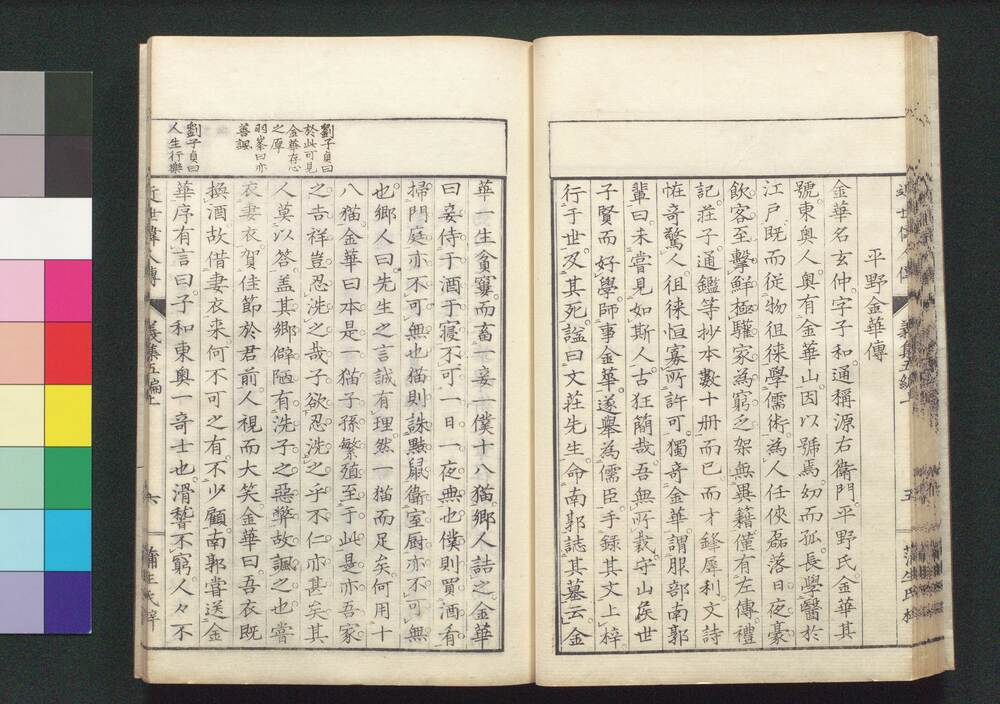 平野金華傳
金華名玄仲。字子和。通稱源右衛門。平野氏。金華其
號。東奥人。奥有金華山。因以號焉。幼而孤。長學醫於
江戸。既而從物徂徠學儒術。為人任俠磊落。日夜豪
飲。客至。擊鮮極驩。家為窮之。架無異籍。僅有左傳。禮
記。莊子。通鑑等抄本數十册而已。而才鋒犀利。文詩
恠奇驚人。徂徠恒寡所許可。獨奇金華。謂服部南郭
輩曰。未嘗見如斯人。古狂簡哉。吾無所裁。守山侯世
子賢而好學。師事金華。遂擧為儒臣。手錄其文上梓
行于世。及其死。謚曰文莊先生。命南郭誌其墓云。金
華一生貧窶。而畜一妾一僕十八猫。鄉人詰之。金華
曰。妾侍于酒于寢。不可一日一夜無也。僕則買酒肴
掃門庭。亦不可無也。猫則誅黠鼠。衛室厨。亦不可無
也。鄉人曰。先生之言誠有理。然一猫而足矣。何用十
八猫。金華曰。本是一猫。子孫繁殖至于此。是亦吾家
之吉祥。豈忍洗之哉。子欲忍洗之乎。不仁亦甚矣。其
人莫以答。盖其鄉僻陋。有洗子之惡弊。故諷之也。嘗
衣妻衣。賀佳節於君前。人視而大笑。金華曰。吾衣既
換酒。故借妻衣來。何不可之有。不少顧。南郭嘗送金
華序。有言曰。子和東奥一奇士也。滑稽不窮。人々不
劉子貞曰
於此可見
金華存心
之厚
羽峯曰亦
善諷
劉子貞曰
人生行樂
近世偉人傳
義集五編上
六
蒲生氏梓
五